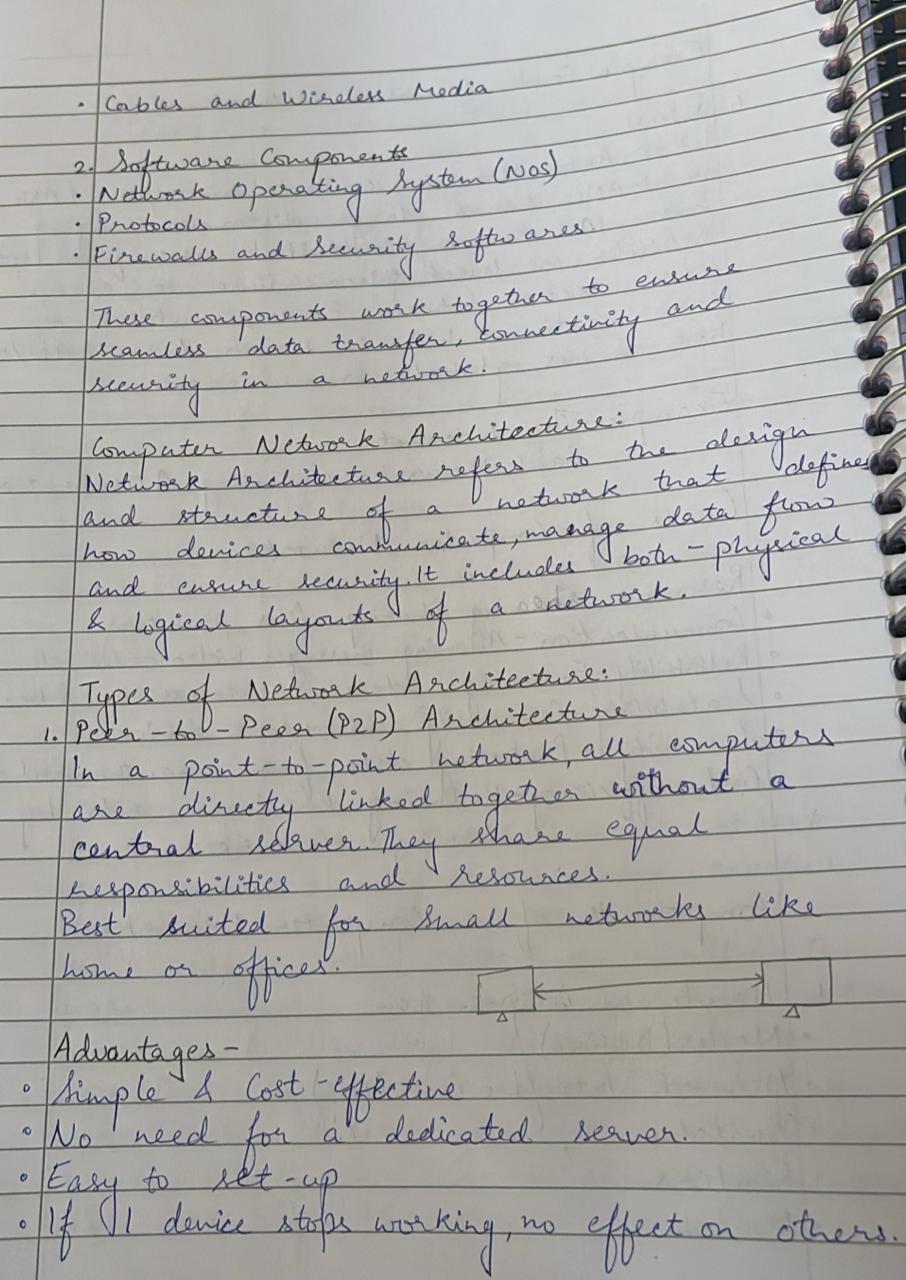 • Cables and Wireless Media
2. Software Components
• Network Operating System (NOS)
• Protocols
• Firewalls and Security Softwares.
These components work together to ensure
seamless data transfer, connectivity and
security in a network.
Computer Network Architecture:
Network Architecture refers to the design
and structure of a network that defines
how devices communicate, manage data flow
and ensure security. It includes both - physical
& logical layouts of a network.
Types of Network Architecture:
1. Peer-to-Peer (P2P) Architecture
In a point-to-point network, all computers
are directly linked together without a
central server. They share equal
responsibilities and resources.
Best suited for small networks like
home or offices.
Advantages -
• Simple & Cost-effective
• No need for a dedicated server.
• Easy to set-up
• If 1 device stops working, no effect on others.